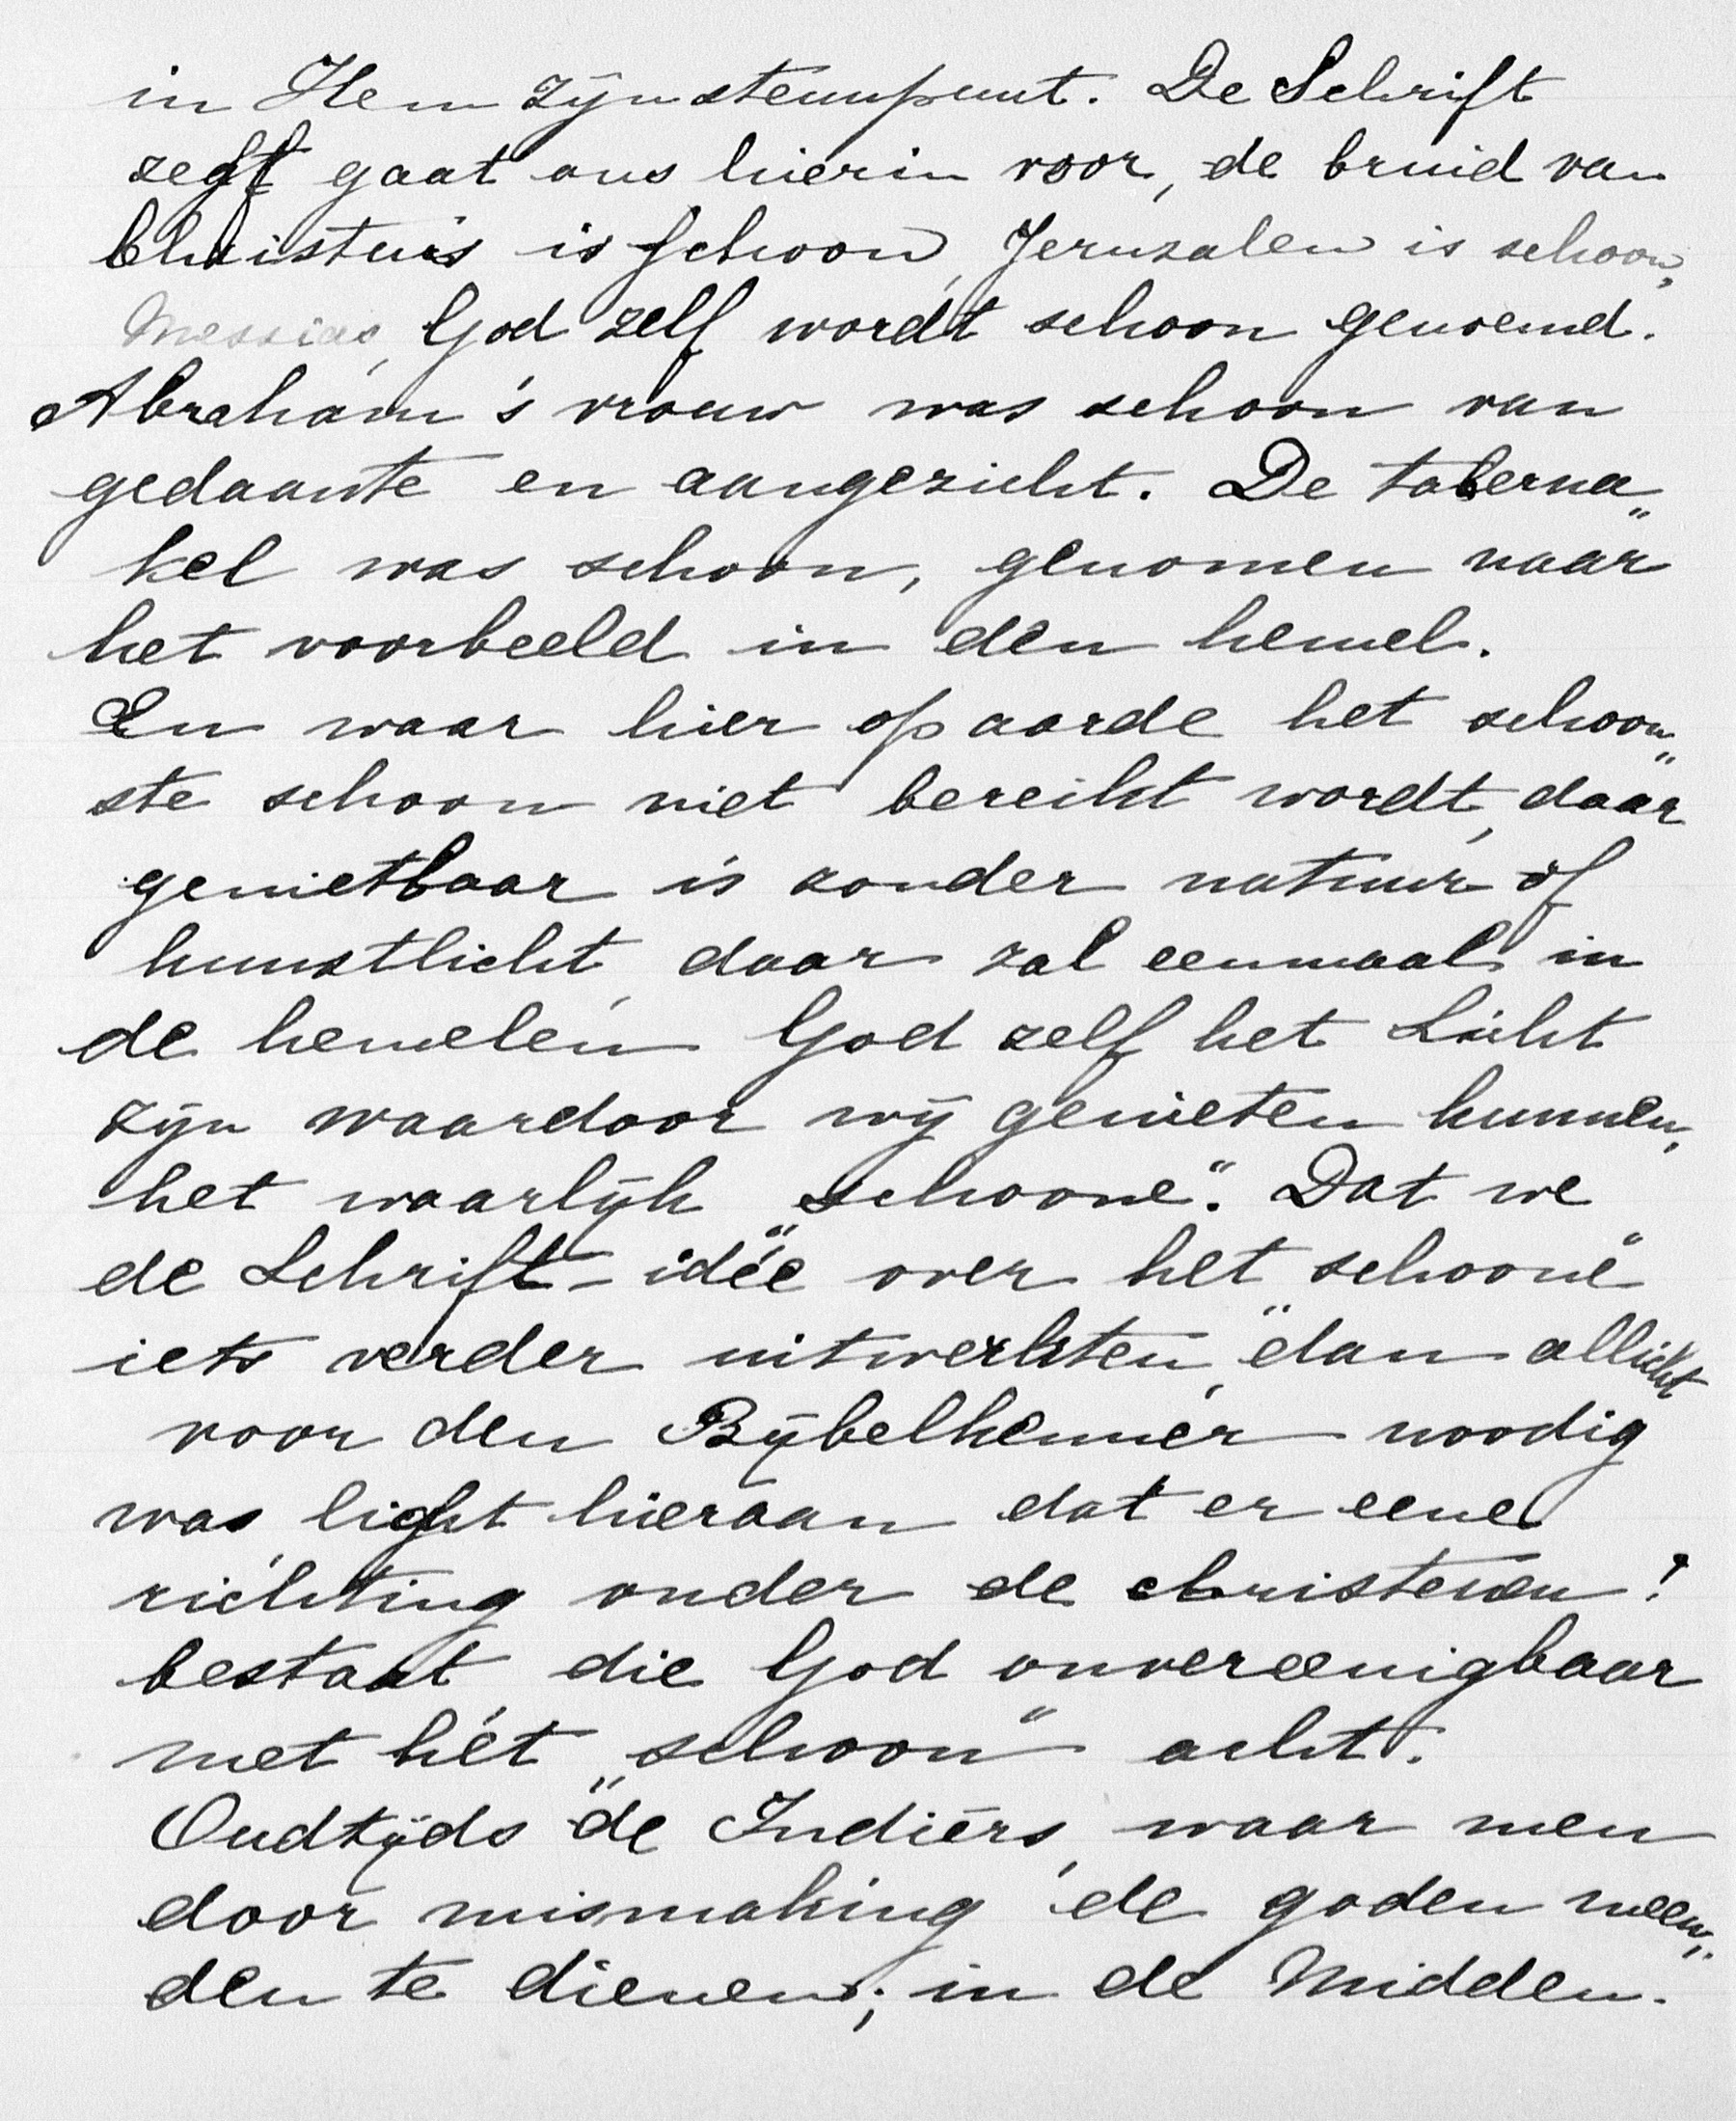 in Hem zijn steunpunt. De Schrift
zegt gaat ons hierin voor, de bruid van
Christus is schoon, Jeruzalem is schoon,
Messias, God zelf wordt schoon genoemd.
Abraham's vrouw was schoon van
gedaante en aangezicht. De taberna„
kel was schoon, genomen naar
het voorbeeld in den hemel.
En waar hier op aarde het schoon„
ste schoon niet bereikt wordt, daar
genietbaar is zonder natuur of
kunstlicht, daar zal eenmaal in
de hemelen God zelf het Licht
zijn waardoor wij genieten kunnen,
het waarlijk „schoone". Dat we
de Schrift-idée over het „schoone"
iets verder uitwerkten, dan allicht
voor den Bijbelkenner noodig
was, ligt hieraan dat er eene
richting onder de christenen!
bestaat, die God onvereenigbaar
met hét „schoon" acht.
Oudtijds de Indiërs, waar men
door mismaking de goden meen„
den te dienen; in de Midden-